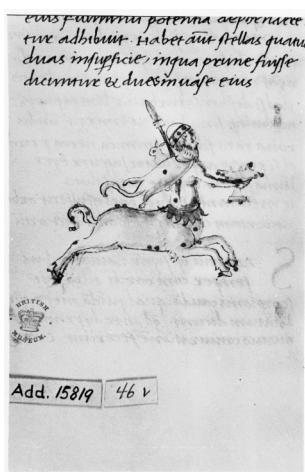 eius fulminis potentia deprehaere
tur adhibuit. Habet aūt stellas quatuor
duas insupficie, inqua prune fuisse
dicuntur & dues inuase eius
BRITISH
MUSEUM
Add. 15819
46 v